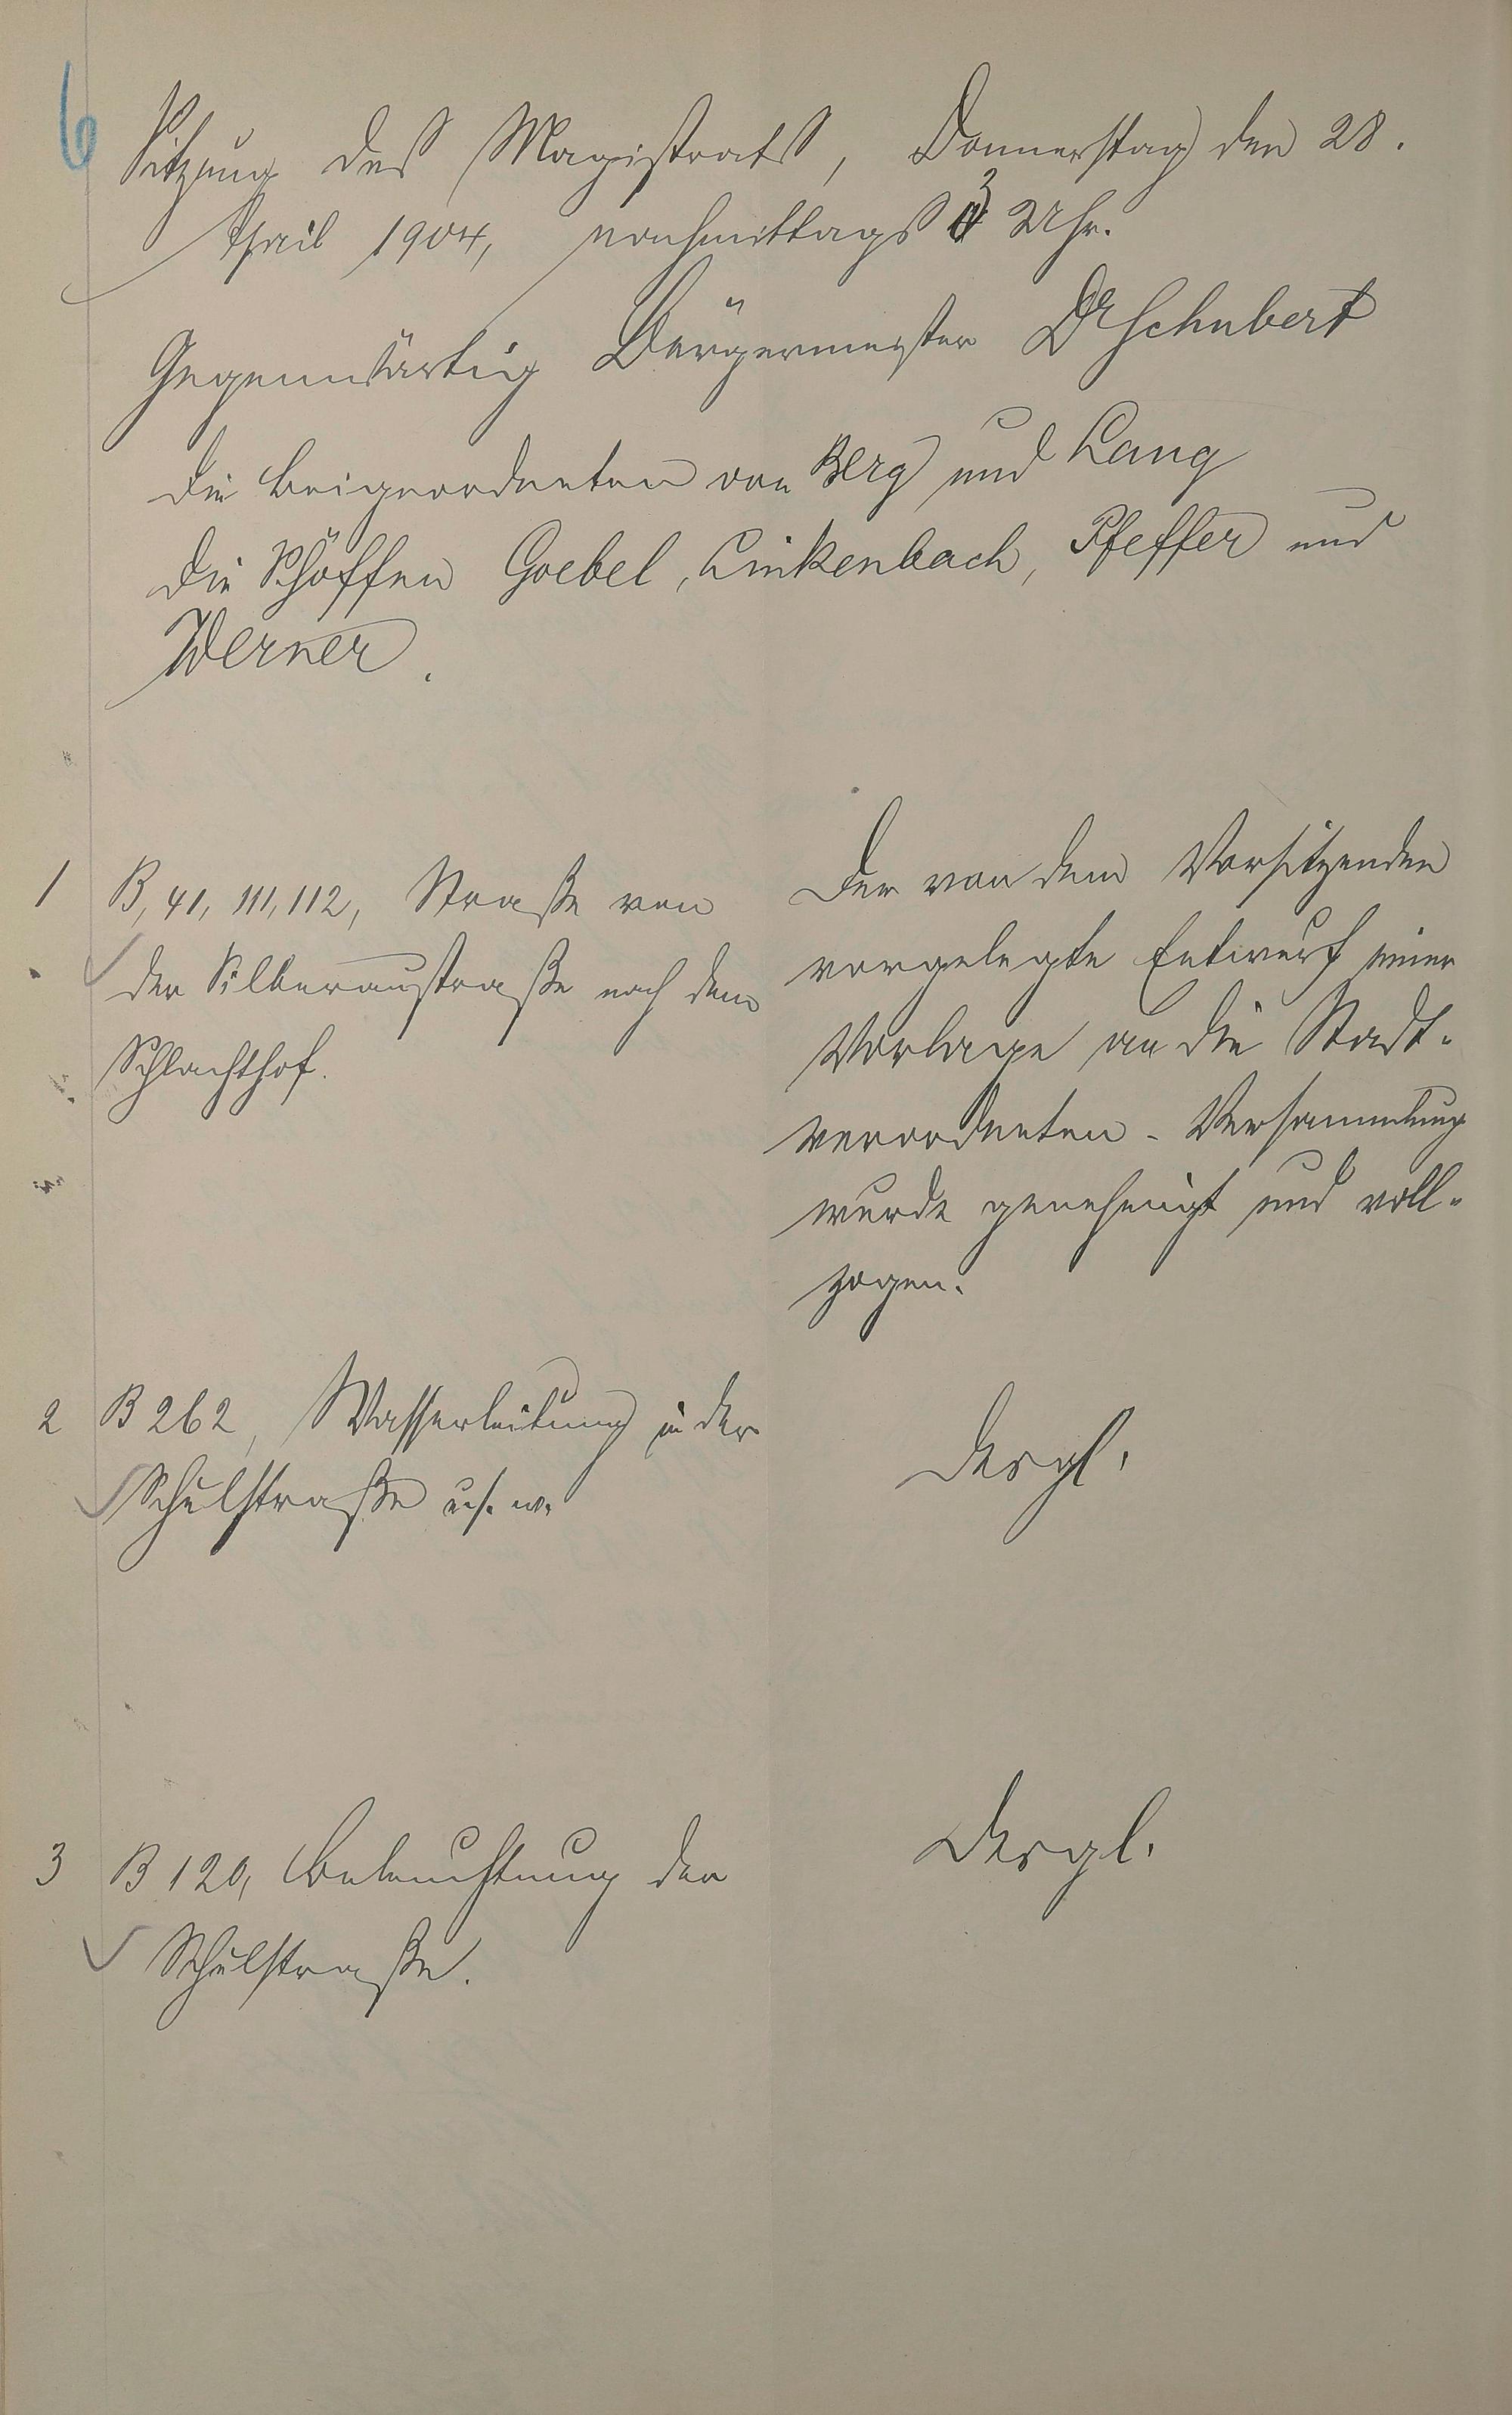 6
Sitzung des Magistrats, Donnerstag den 28.
April 1904, nachmittags 3 Uhr.
Gegenwärtig Bürgermeister Dr Schubert
die Beigeordneten von Berg und Lang
die Schöffen Goebel, Linkenbach, Pfeffer und
Werner.
1 B, 41, 111, 112, Straße von
der Silberaustraße nach dem
Schlachthof.
Der von dem Vorsitzenden
vorgelegte Entwurf einer
Vorlage an die Stadt-
verordneten-Versammlung
wurde genehmigt und voll-
zogen.
2 B 262, Wasserleitung in der
Schulstraße u. s. w.
desgl.
3 B 120, Beleuchtung der
Schulstraße.
desgl.